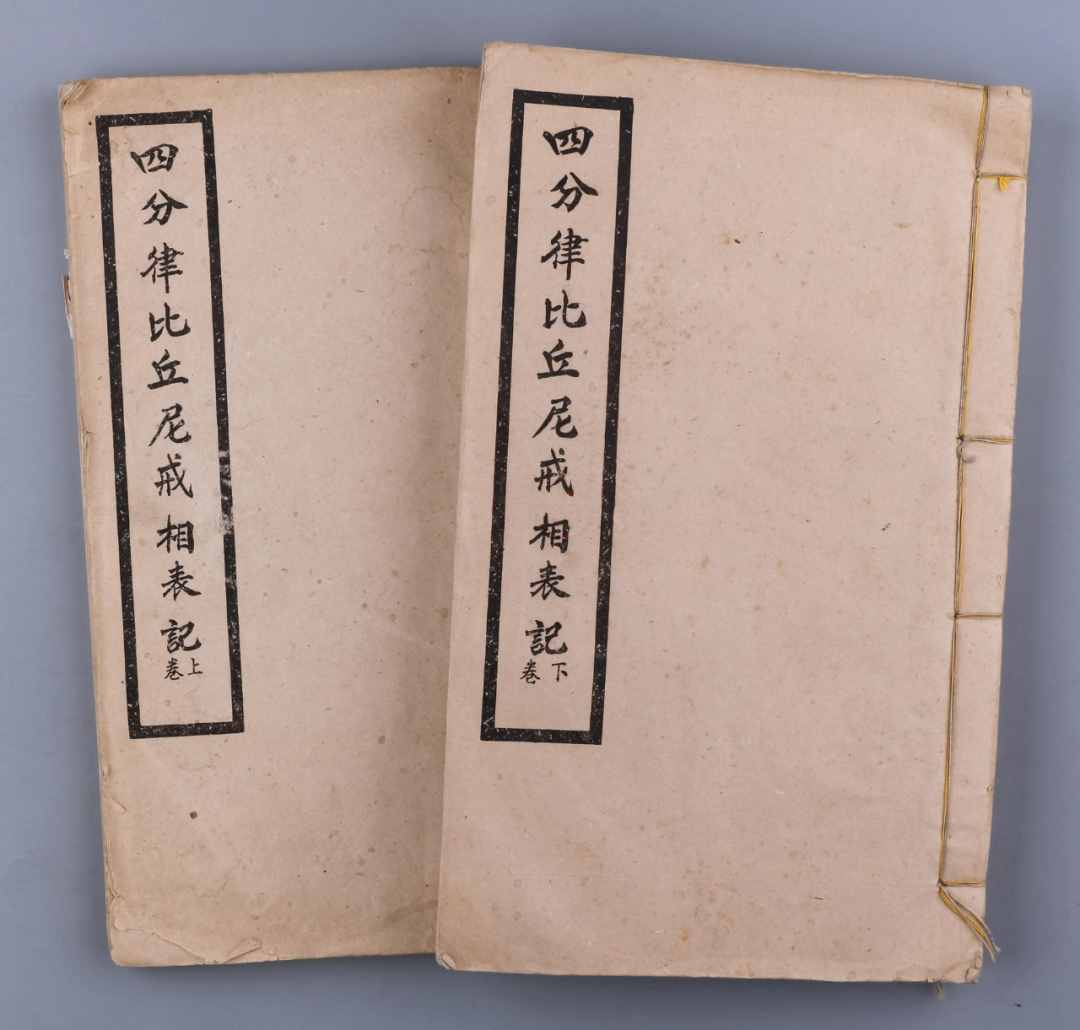 四分律比丘尼戒相表記上卷
四分律比丘尼戒相表記下卷